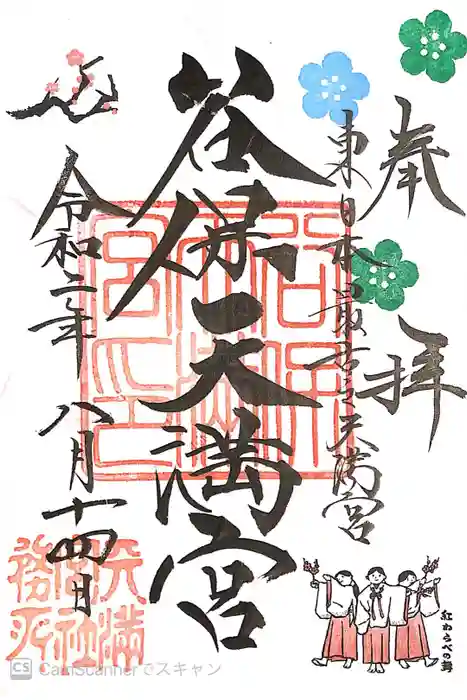 奉拝
東日本最古之天満宮
谷保天満宮
令和二年八月十四日
谷保
天満
宮印
天満
宮社
務所
紅わらべの舞
CS CamScannerでスキャン